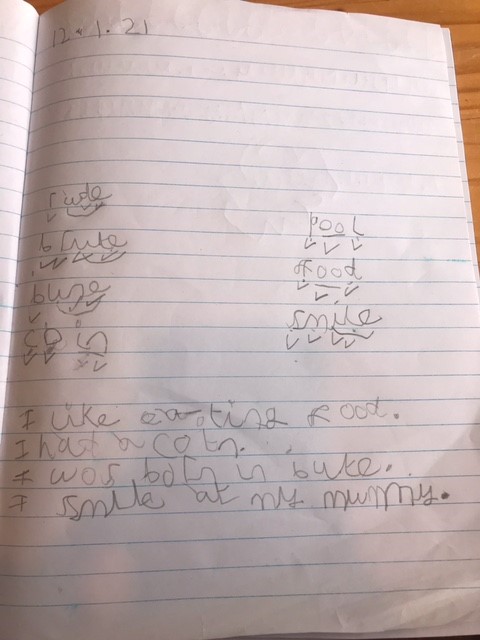 12.1.21
rude
coin
pool
food
smile
I like eating food.
I hat a coin.
I was born in
I smile at my mummy.